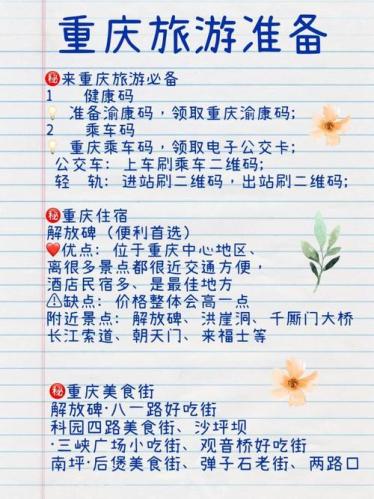 重庆旅游准备
㊙来重庆旅游必备
1 健康码
💡 准备渝康码，领取重庆渝康码；
2 乘车码
💡 重庆乘车码，领取电子公交卡；
公交车：上车刷乘车二维码；
轻 轨：进站刷二维码，出站刷二维码；
㊙重庆住宿
解放碑（便利首选）
❤️优点：位于重庆中心地区、
离很多景点都很近交通方便，
酒店民宿多、是最佳地方
⚠缺点：价格整体会高一点
附近景点：解放碑、洪崖洞、千厮门大桥
长江索道、朝天门、来福士等
㊙重庆美食街
解放碑·八一路好吃街
科园四路美食街、沙坪坝
·三峡广场小吃街、观音桥好吃街
南坪·后煲美食街、弹子石老街、两路口